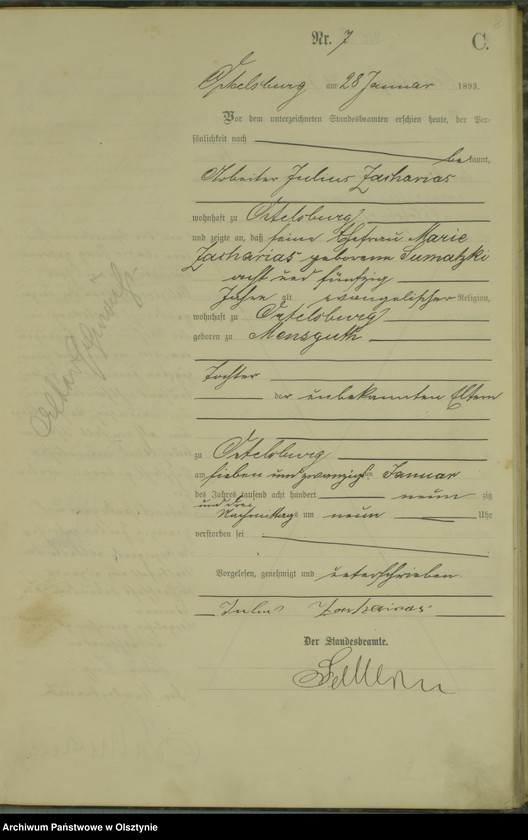 Nr. 7
C.
Ortelsburg am 28 Januar 1893.
Vor dem unterzeichneten Standesbeamten erschien heute, der Per-
sönlichkeit nach
bekannt,
Arbeiter Julius Zacharias
wohnhaft zu Ortelsburg
und zeigte an, daß seine Ehefrau Marie
Zacharias geborene Sumatzki
acht und fünfzig
Jahre alt evangelischer Religion,
wohnhaft zu Ortelsburg
geboren zu Mensguth
Tochter
der unbekannten Eltern
zu Ortelsburg
am sieben und zwanzigsten Januar
des Jahres tausend acht hundert neun zig
und drei
Nachmittags um neun Uhr
verstorben sei
Vorgelesen, genehmigt und unterschrieben
Julius Zacharias
Der Standesbeamte.
Archiwum Państwowe w Olsztynie